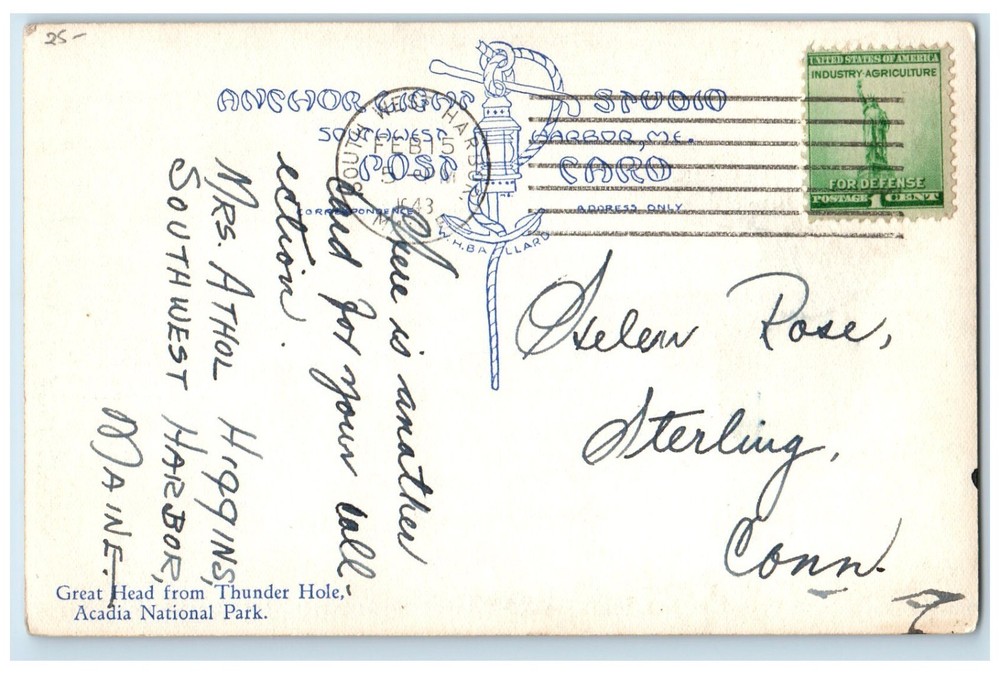 25-
ANCHOR LIGHT STUDIO
SOUTHWEST HARBOR, ME.
POST CARD
CORRESPONDENCE
ADDRESS ONLY
W.H. BALLARD
SOUTHWEST HARBOR
FEB 15
5 PM
1943
UNITED STATES OF AMERICA
INDUSTRY·AGRICULTURE
FOR DEFENSE
POSTAGE 1 CENT
Here is another
card for your coll-
ection.
MRS. ATHOL HIGGINS,
SOUTHWEST HARBOR,
MAINE.
Helen Rose,
Sterling,
Conn.
Great Head from Thunder Hole,
Acadia National Park.